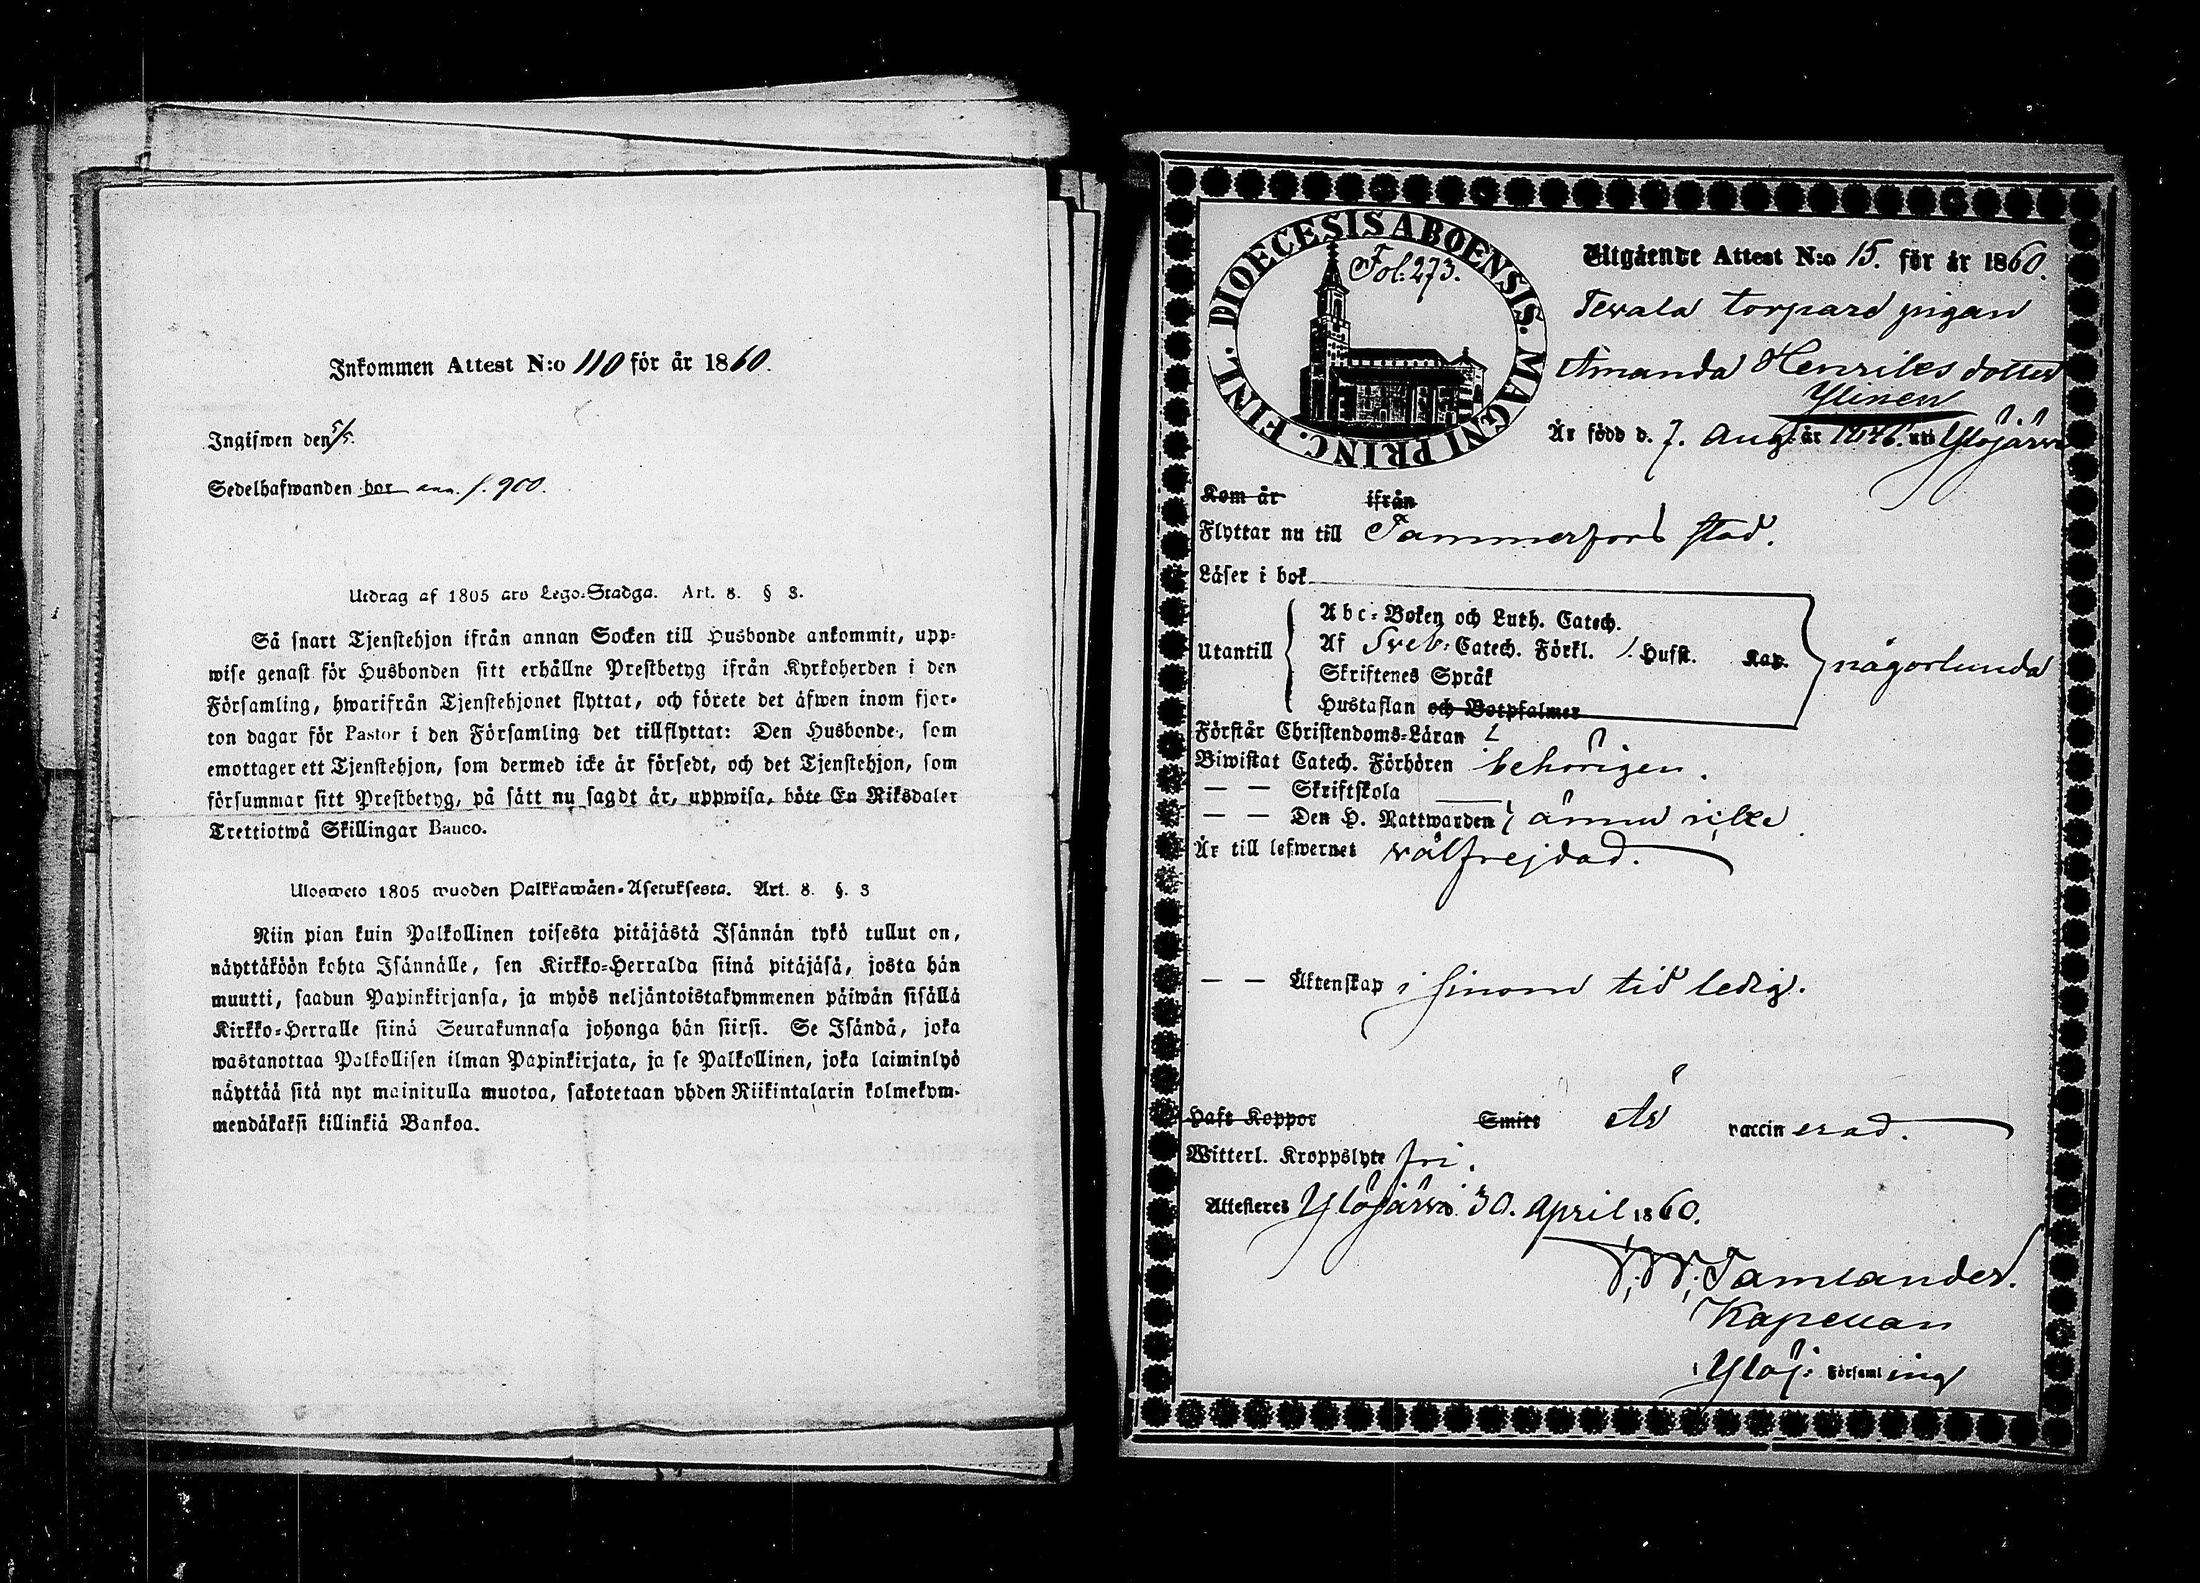 Inkommen Attest N:o 110 för år 1860.
Ingifwen den 5/5.
Sedelhafwanden bor ann. f. 900.
Utdrag af 1805 års Lego-Stadga. Art. 8. § 3.
Så snart Tjenstehjon ifrån annan Socken till Husbonde ankommit, upp-
wise genast för Husbonden sitt erhållne Prestbetyg ifrån Kyrkoherden i den
Församling, hwarifrån Tjenstehjonet flyttat, och förete det äfwen inom fjor-
ton dagar för Pastor i den Församling det tillflyttat: Den Husbonde, som
emottager ett Tjenstehjon, som dermed icke är försedt, och det Tjenstehjon, som
försummar sitt Prestbetyg, på sätt nu sagdt är, uppwisa, böte En Riksdaler
Trettiotwå Skillingar Banco.
Uloswето 1805 wuoden Palkkawäen-Asetuksesta. Art. 8. §. 3
Niin pian kuin Palkollinen toisesta pitäjästä Isännän tykö tullut on,
näyttäköön kohta Isännälle, sen Kirkko-Herralda siinä pitäjäsä, josta hän
muutti, saadun Papinkirjansa, ja myös neljäntoistakymmenen päiwän sisällä
Kirkko-Herralle siinä Seurakunnasa johonga hän siirsi. Se Isändä, joka
wastanottaa Palkollisen ilman Papinkirjata, ja se Palkollinen, joka laiminlyö
näyttää sitä nyt mainitulla muotoa, sakotetaan yhden Riikintalarin kolmekym-
mendäkaksi killinkiä Bankoa.
DIOECESIS ABOENSIS. MAGNI PRINC. FINL.
Fol. 273.
Utgående Attest N:o 15. för år 1860.
Tevala torpare pigan
Amanda Henriks dotter
Ylinen
Är född d. 7. Aug. år 1846. uti Ylöjärvi
Kom år ifrån
Flyttar nu till Tammerfors stad.
Läser i bok
Utantill
Abc-Boken och Luth. Catech.
Af Sveb. Catech. Förkl. 1. Hufst. Kap.
Skriftenes Språk
Hustaflan och Botpsalmer
någorlunda
Förstår Christendoms-Läran
Biwistat Catech. Förhören behörigen.
— — Skriftskola
— — Den H. Nattwarden ännu icke
Är till lefwernet välfrejdad.
— — Äktenskap i sinom tid ledig.
Haft Koppor Smitt Är vaccinerad.
Witterl. Kroppslyte fri.
Attesteres Ylöjärvi 30. April 1860.
Tamlander.
Kapellan
i Ylöj. Församling